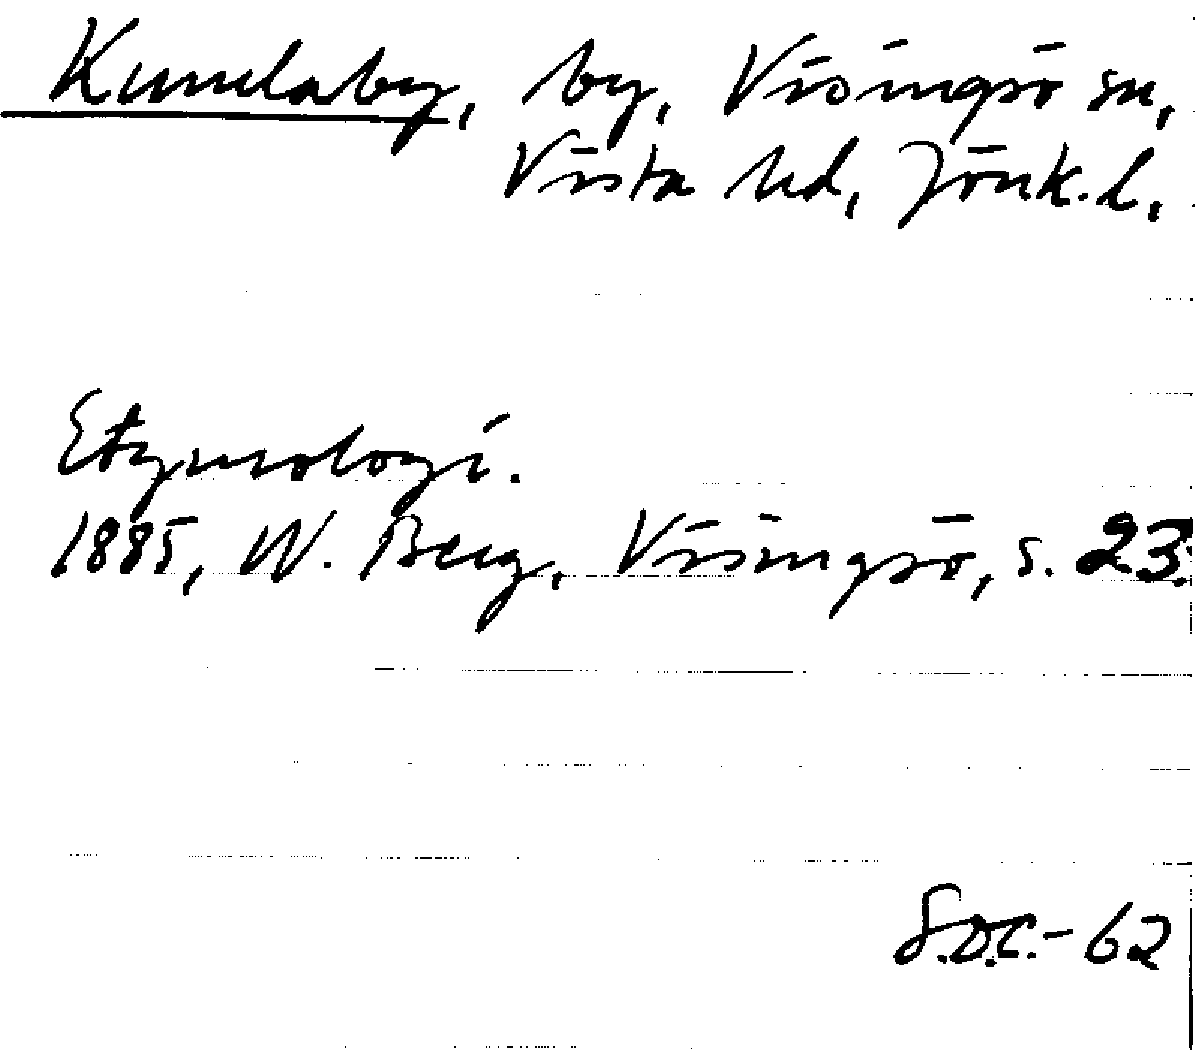 Kumlaby, by, Visingsö sn,
Vista hd, Jönk. l.
Etymologi.
1885, W. Berg, Visingsö, s. 23.
S.O.C.-62